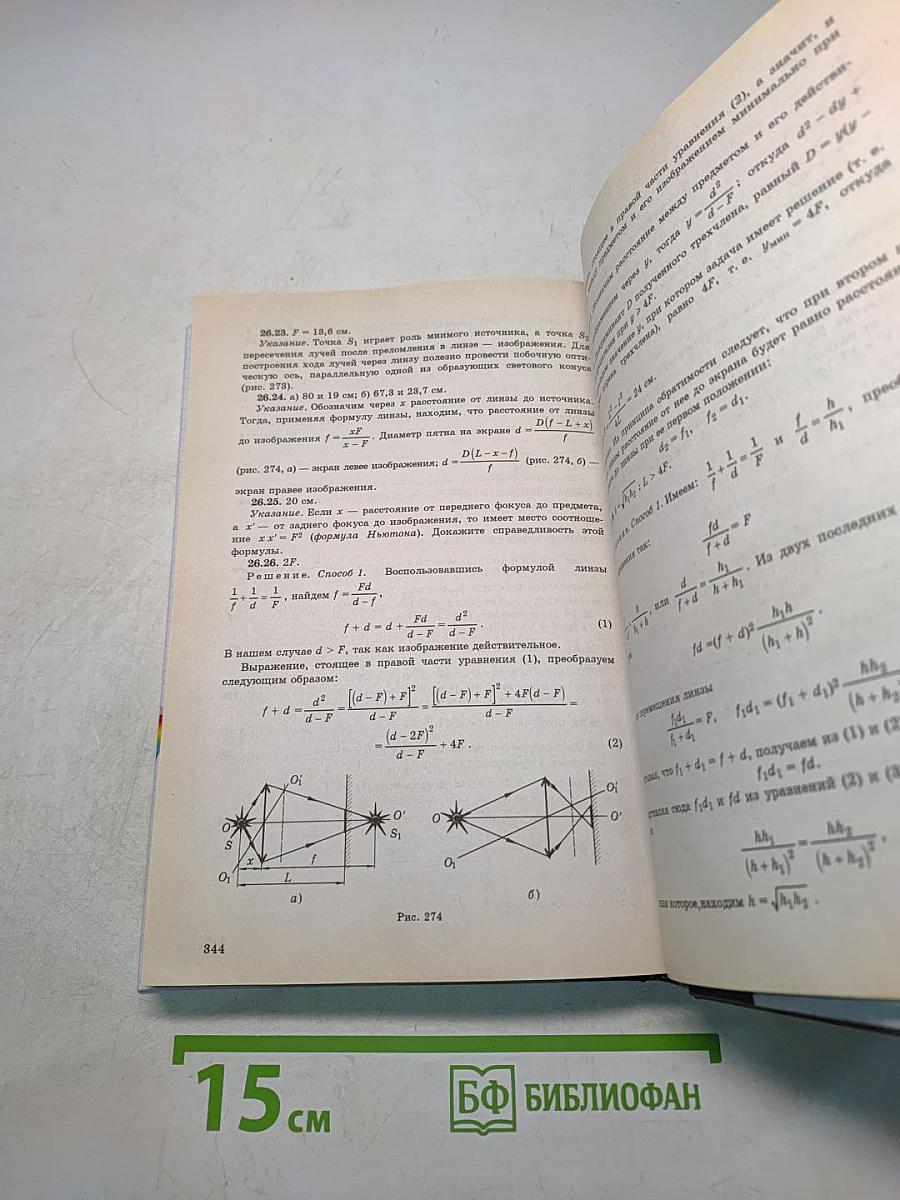 26.23. F = 13,6 см.
Указание. Точка S₁ играет роль мнимого источника, а точка S₂
пересечения лучей после преломления в линзе — изображения. Для
построения хода лучей через линзу полезно провести побочную опти-
ческую ось, параллельную одной из образующих светового конуса
(рис. 273).
26.24. а) 80 и 19 см; б) 67,3 и 23,7 см.
Указание. Обозначим через x расстояние от линзы до источника.
Тогда, применяя формулу линзы, находим, что расстояние от линзы
до изображения f = xF/(x – F). Диаметр пятна на экране d = D(f – L + x)/f
(рис. 274, а) — экран левее изображения; d = D(L – x – f)/f (рис. 274, б) —
экран правее изображения.
26.25. 20 см.
Указание. Если x — расстояние от переднего фокуса до предмета,
а x′ — от заднего фокуса до изображения, то имеет место соотноше-
ние x x′ = F² (формула Ньютона). Докажите справедливость этой
формулы.
26.26. 2F.
Решение. Способ 1. Воспользовавшись формулой линзы
1/f + 1/d = 1/F, найдем f = Fd/(d – f),
f + d = d + Fd/(d – F) = d²/(d – F). (1)
В нашем случае d > F, так как изображение действительное.
Выражение, стоящее в правой части уравнения (1), преобразуем
следующим образом:
f + d = d²/(d – F) = [(d – F) + F]²/(d – F) = [(d – F) + F]² + 4F(d – F)/(d – F) =
= (d – 2F)²/(d – F) + 4F. (2)
O S x O₁ L f O₁′ O′ S₁
а)
O O₁ O₁′ O′
б)
Рис. 274
344
в правой части уравнения (2), а значит, и
предметом и его изображением минимально при
расстояние между предметом и его действи-
через y, тогда y = d²/(d – F); откуда d² – dy +
D полученного трехчлена, равный D = y(y –
при y > 4F.
y, при котором задача имеет решение (т. е.
трехчлена), равно 4F, т. е. yмин = 4F, откуда
= 24 см.
Из принципа обратимости следует, что при втором
расстояние от нее до экрана будет равно расстоян
до линзы при ее первом положении:
d₂ = f₁, f₂ = d₁.
L > 4F.
Способ 1. Имеем: 1/f + 1/d = 1/F и f/d = h/h₁, преоб
так:
fd/(f + d) = F
или d/(f + d) = h₁/(h + h₁). Из двух последних
fd = (f + d)² h₁h/(h₁ + h)².
перемещения линзы
f₁d₁/(f₁ + d₁) = F, f₁d₁ = (f₁ + d₁)² hh₂/(h + h₂)
что f₁ + d₁ = f + d, получаем из (1) и (2
f₁d₁ = fd.
сюда f₁d₁ и fd из уравнений (2) и (3
hh₁/(h + h₁)² = hh₂/(h + h₂)².
которое, находим h = √h₁h₂.
15 см
БФ БИБЛИОФАН